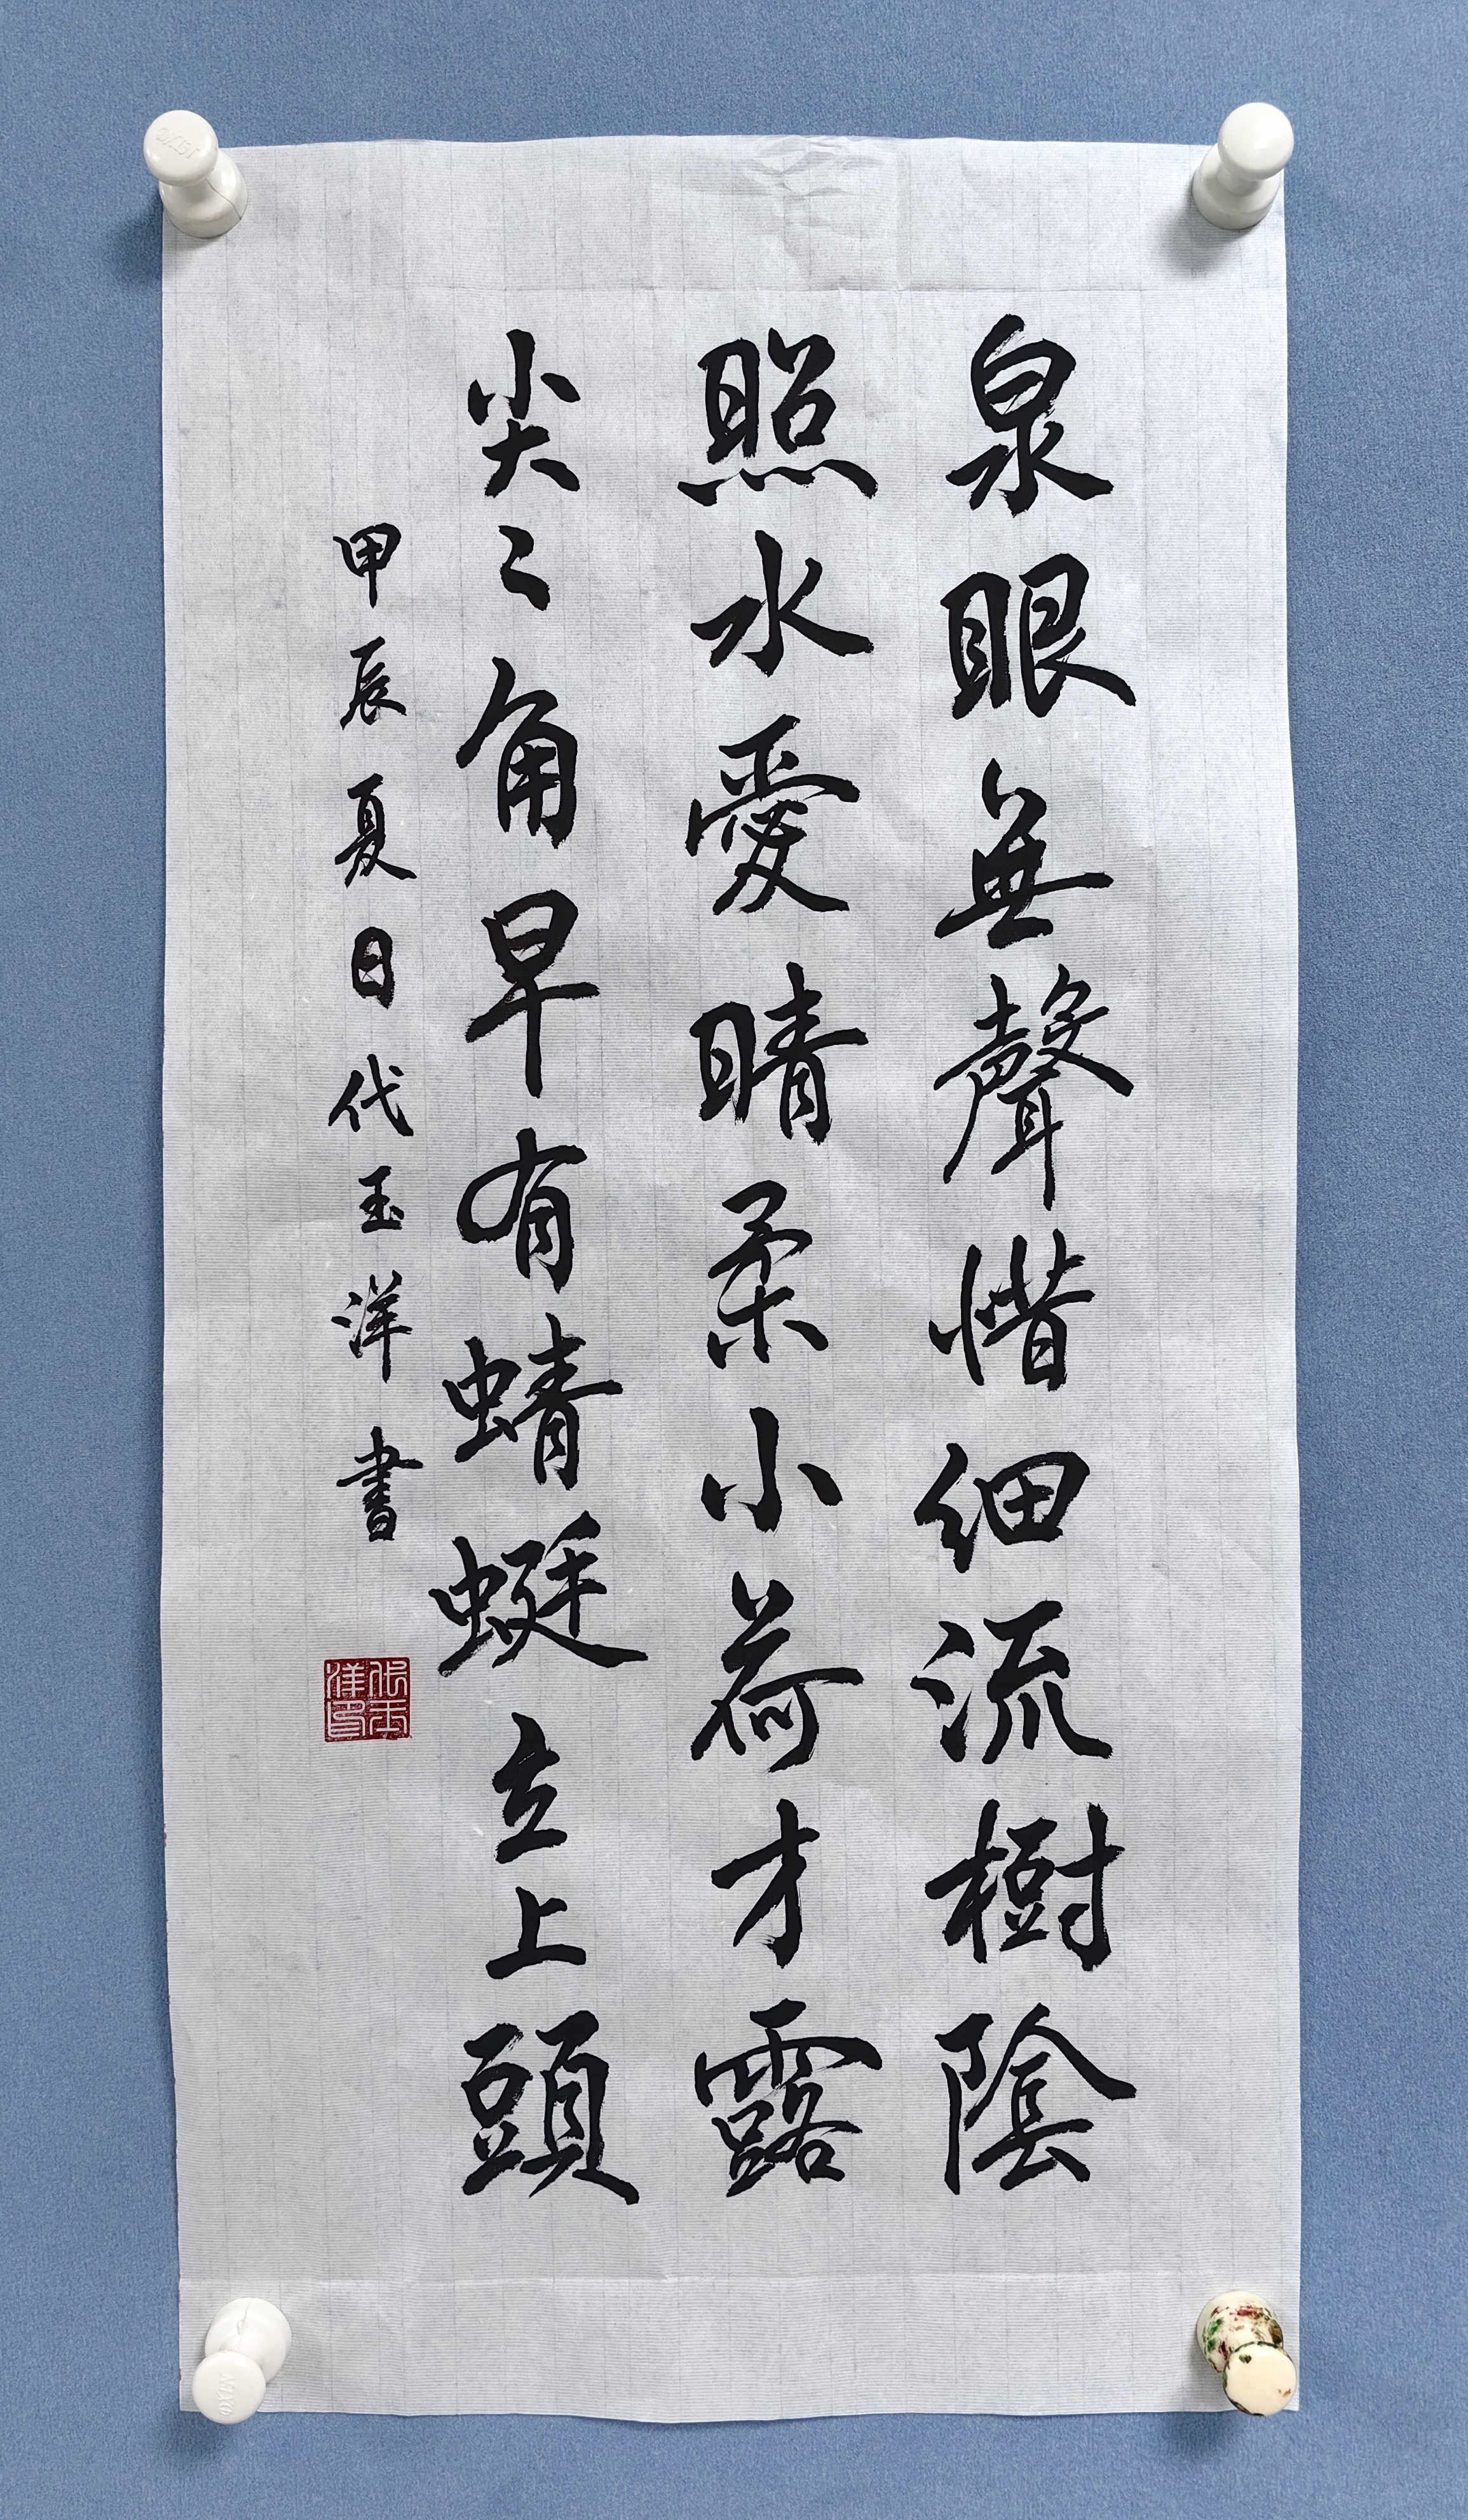 泉眼無聲惜细流樹陰
照水愛晴柔小荷才露
尖〻角早有蜻蜓立上頭
甲辰夏日代玉洋書
代玉洋印